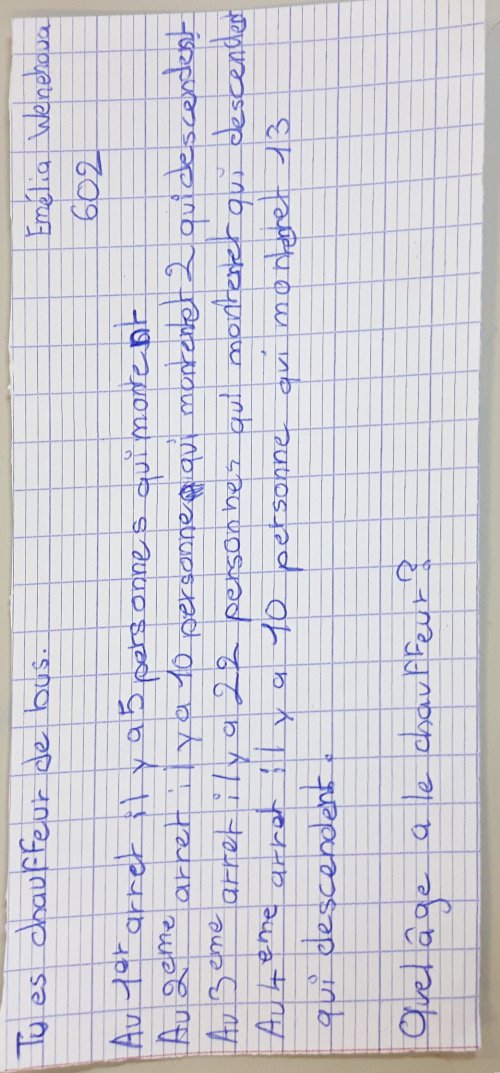 Emélia Wenehoua
602
Tu es chauffeur de bus.
Au 1er arret il y a 5 personnes qui montent
Au 2eme arret il y a 10 personne qui montent 2 qui descendent
Au 3eme arret il y a 22 personnes qui montent qui descendent
Au 4eme arret il y a 10 personne qui montent 13
qui descendent.
Quel âge a le chauffeur?